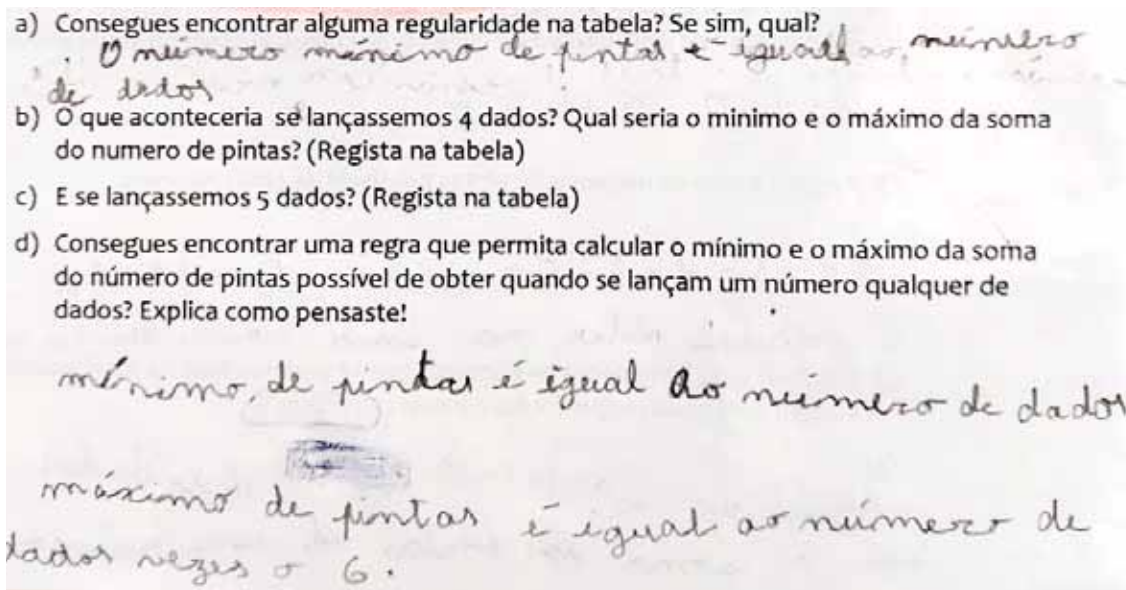 a) Consegues encontrar alguma regularidade na tabela? Se sim, qual?
O número mínimo de pintas é igual ao número
de dados
b) O que aconteceria se lançassemos 4 dados? Qual seria o minimo e o máximo da soma
do numero de pintas? (Regista na tabela)
c) E se lançassemos 5 dados? (Regista na tabela)
d) Consegues encontrar uma regra que permita calcular o mínimo e o máximo da soma
do número de pintas possível de obter quando se lançam um número qualquer de
dados? Explica como pensaste!
mínimo, de pintas é igual ao número de dados
máximo de pintas é igual ao número de
dados vezes o 6.